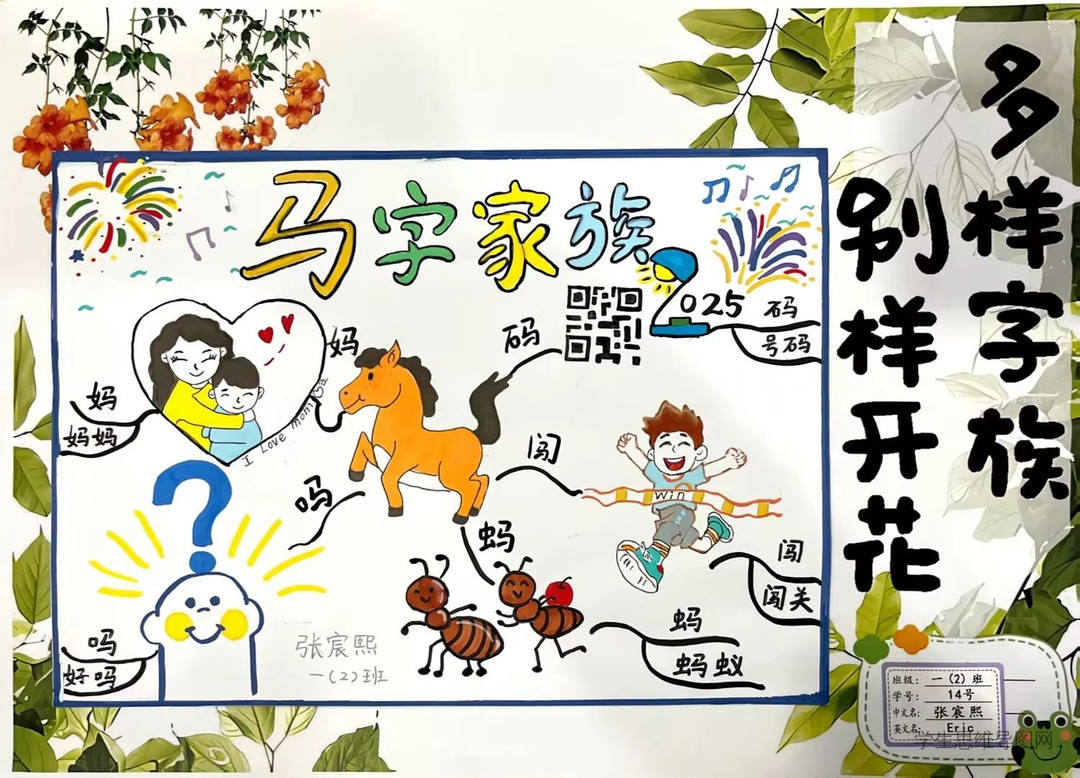 多样字族
别样开花
马字家族
2025
码
号码
妈
码
妈
妈妈
I Love mom
闯
win
吗
蚂
闯
闯关
吗
好吗
蚂
蚂蚁
张宸熙
一(2)班
班级: 一(2)班
学号: 14号
中文名: 张宸熙
英文名: Eric
学生思维导图网